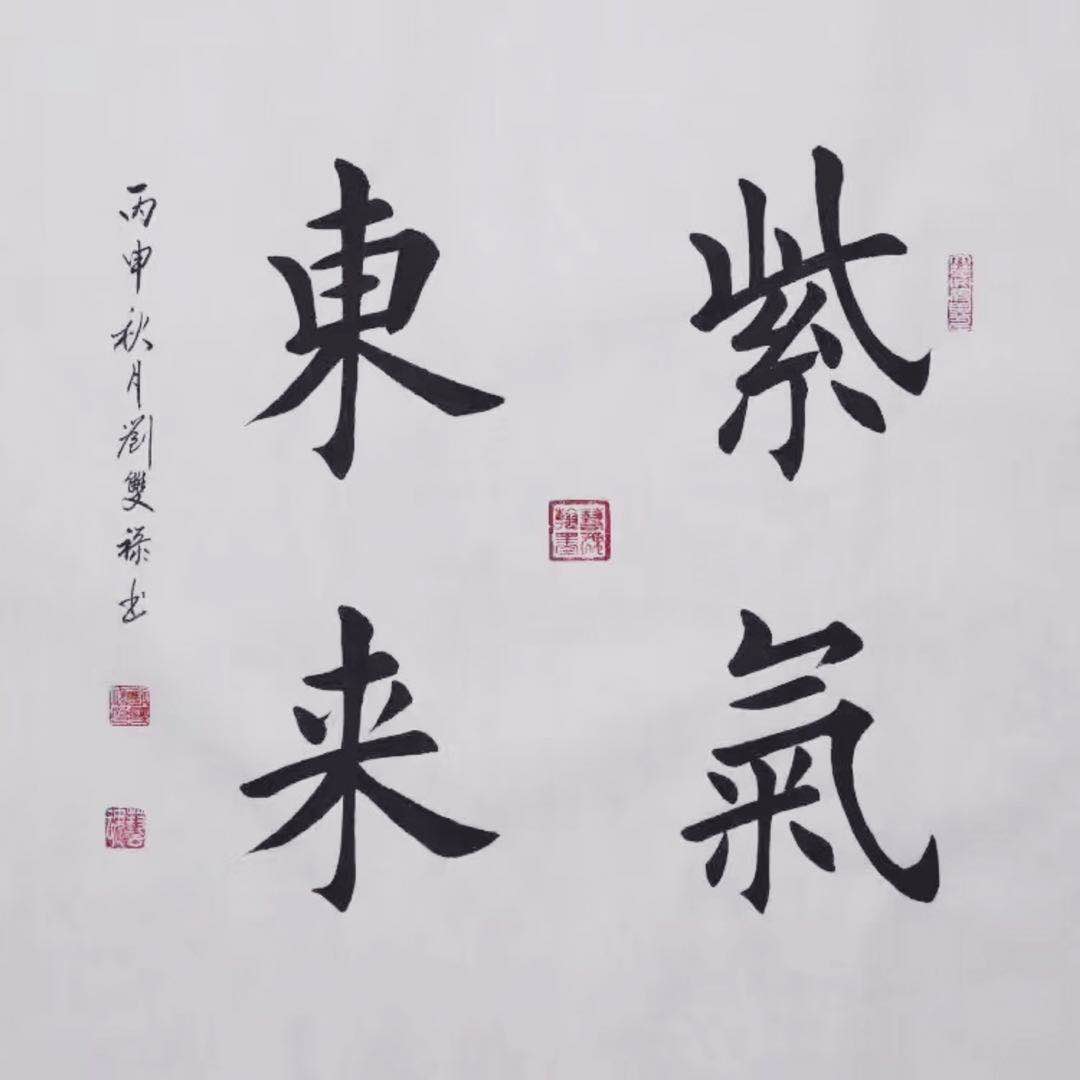 紫氣
東来
丙申秋月劉雙祿书